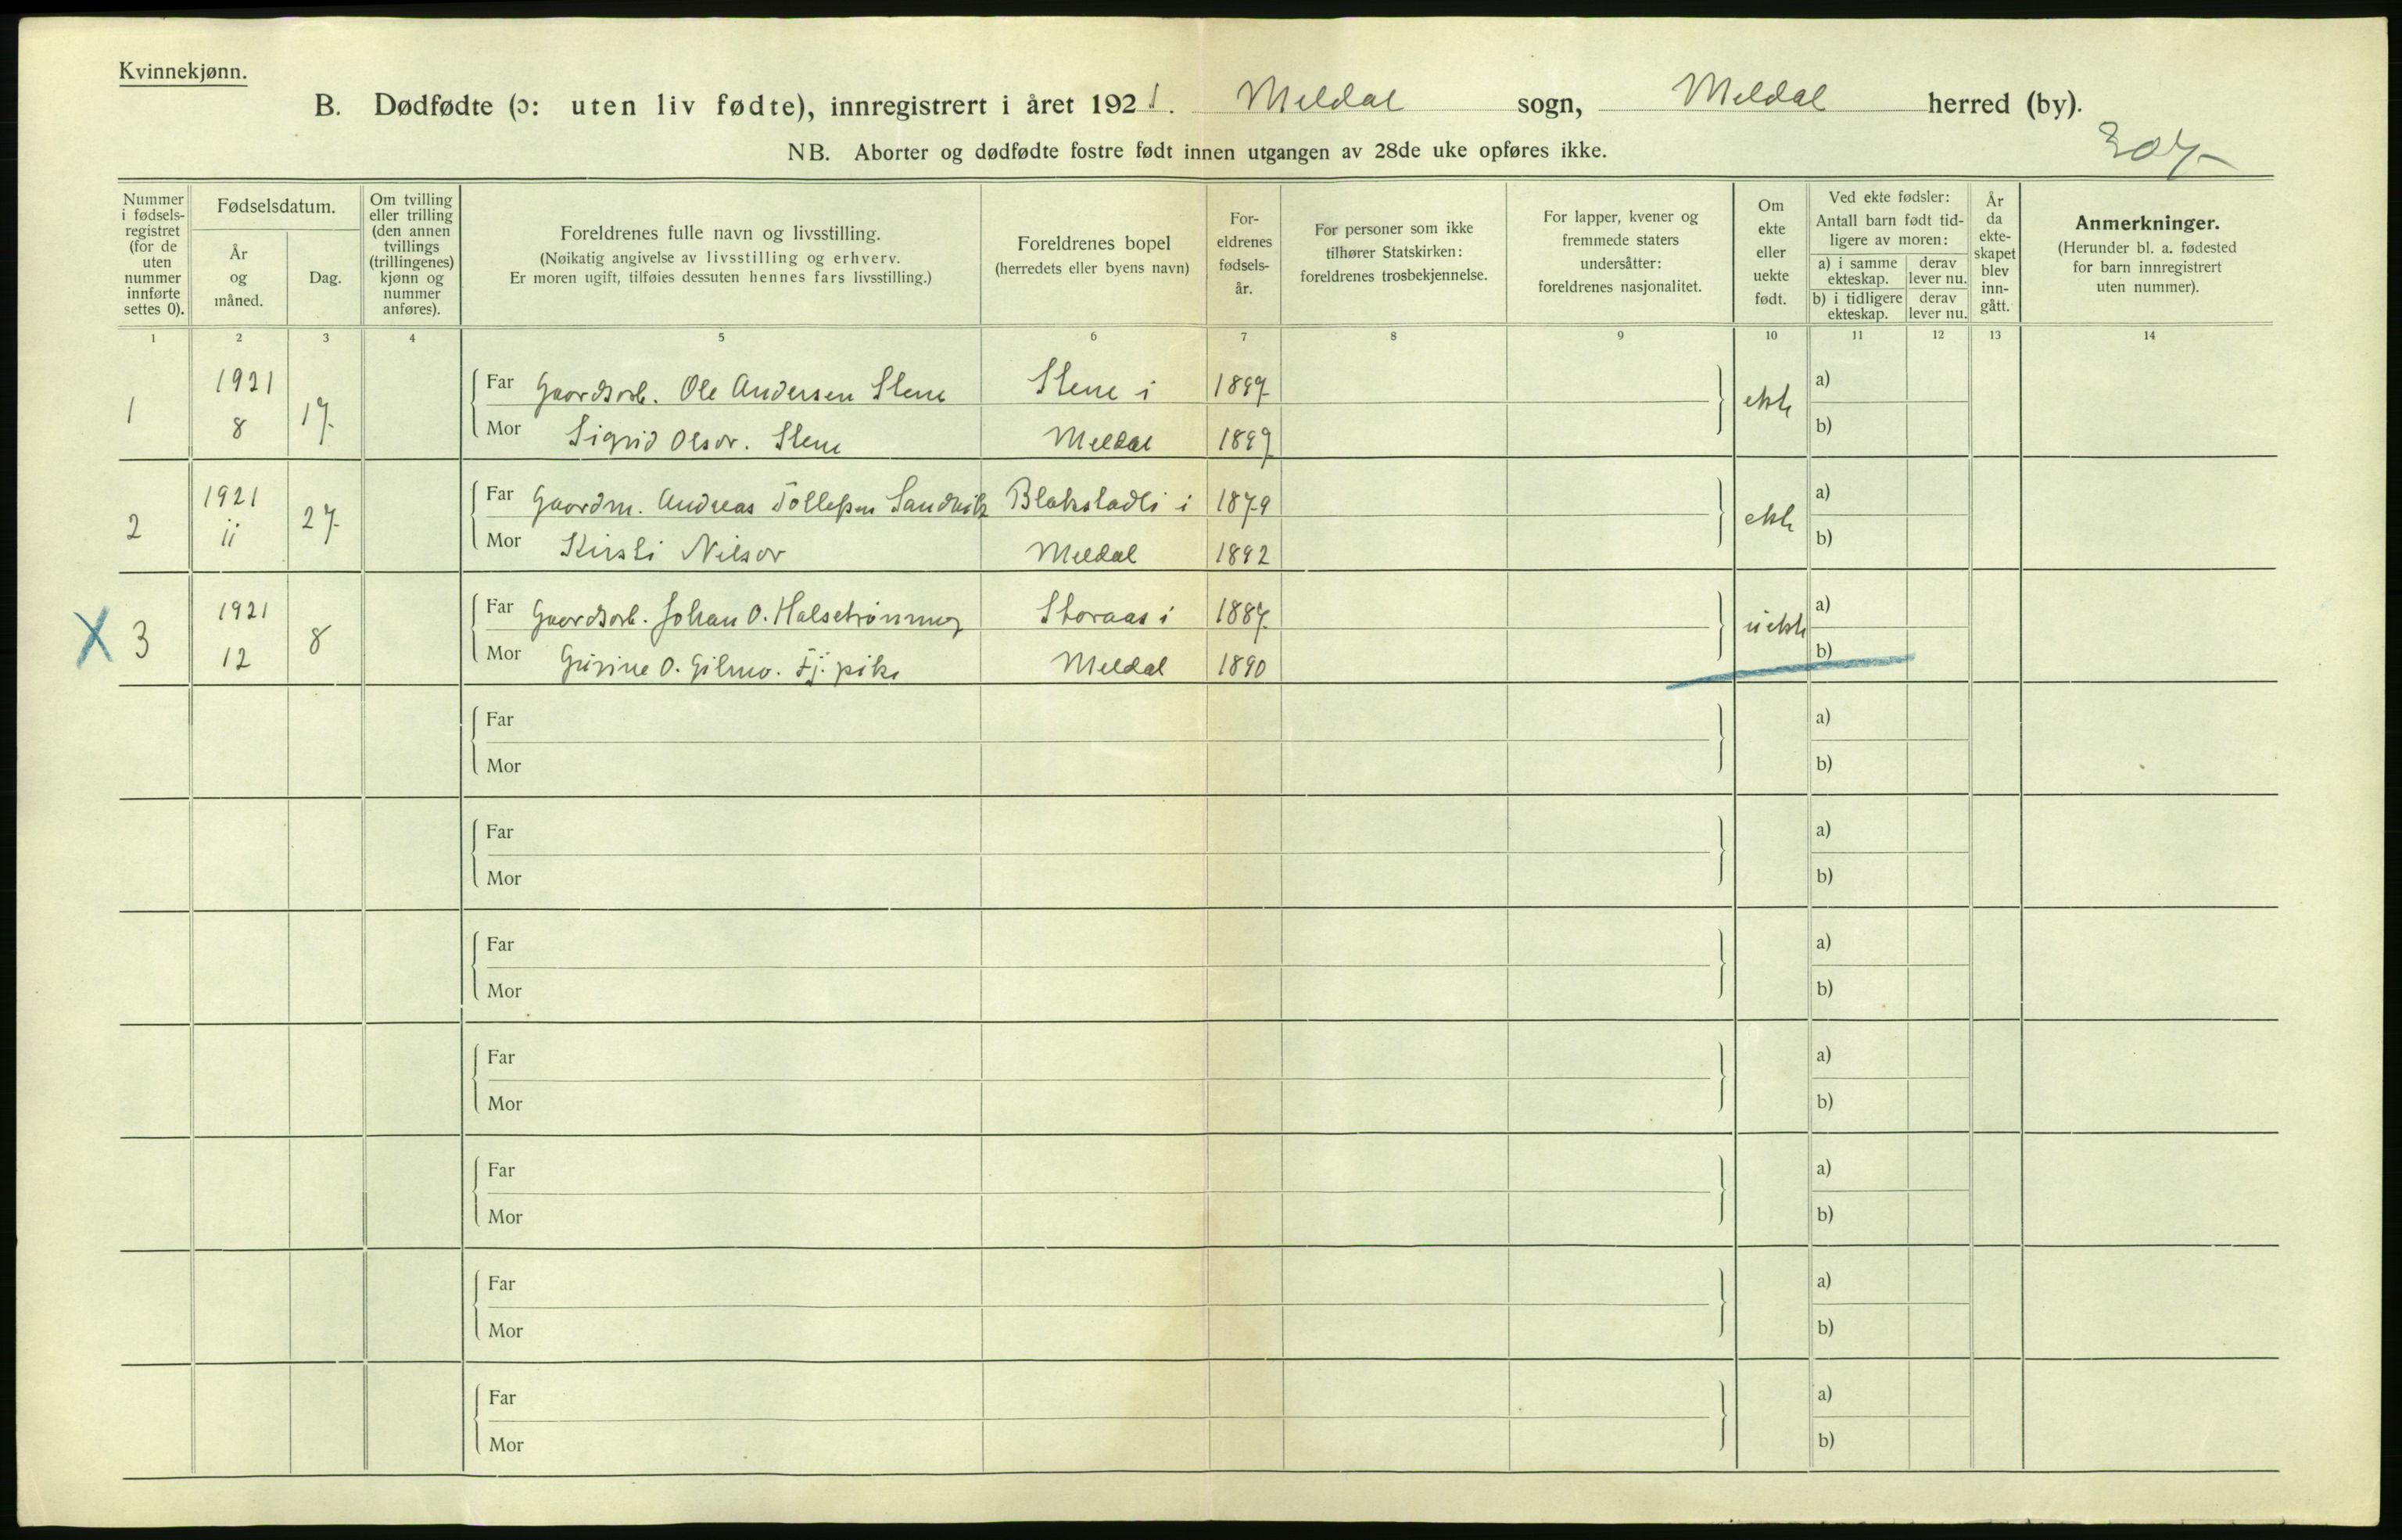 Kvinnekjønn.
B. Dødfødte (ɔ: uten liv fødte), innregistrert i året 1921. Meldal sogn, Meldal herred (by).
NB. Aborter og dødfødte fostre født innen utgangen av 28de uke opføres ikke.
307
Nummer i fødsels-registret (for de uten nummer innførte settes 0).
Fødselsdatum.
År og måned.
Dag.
Om tvilling eller trilling (den annen tvillings (trillingenes) kjønn og nummer anføres).
Foreldrenes fulle navn og livsstilling.
(Nøikatig angivelse av livsstilling og erhverv.
Er moren ugift, tilføies dessuten hennes fars livsstilling.)
Foreldrenes bopel
(herredets eller byens navn)
For-eldrenes fødsels-år.
For personer som ikke tilhører Statskirken: foreldrenes trosbekjennelse.
For lapper, kvener og fremmede staters undersåtter: foreldrenes nasjonalitet.
Om ekte eller uekte født.
Ved ekte fødsler:
Antall barn født tid-ligere av moren:
a) i samme ekteskap.
derav lever nu.
b) i tidligere ekteskap.
derav lever nu.
År da ekte-skapet blev inn-gått.
Anmerkninger.
(Herunder bl. a. fødested for barn innregistrert uten nummer).
1 2 3 4 5 6 7 8 9 10 11 12 13 14
1 1921 8 17
Far Gaardsarb. Ole Andersen Stene Stene i 1897 ekte a)
Mor Sigrid Olsdr. Stene Meldal 1899 b)
2 1921 11 27
Far Gaardm. Andreas Tollefsen Sandvik Blakstadli i 1879 ekte a)
Mor Kirsti Nilsdr Meldal 1892 b)
X 3 1921 12 8
Far Gaardsarb. Johan O. Halsetrønning Storaas i 1887 uekte a)
Mor Gurine O. Gilmo. Tj. pike Meldal 1890 b)
Far a)
Mor b)
Far a)
Mor b)
Far a)
Mor b)
Far a)
Mor b)
Far a)
Mor b)
Far a)
Mor b)
Far a)
Mor b)